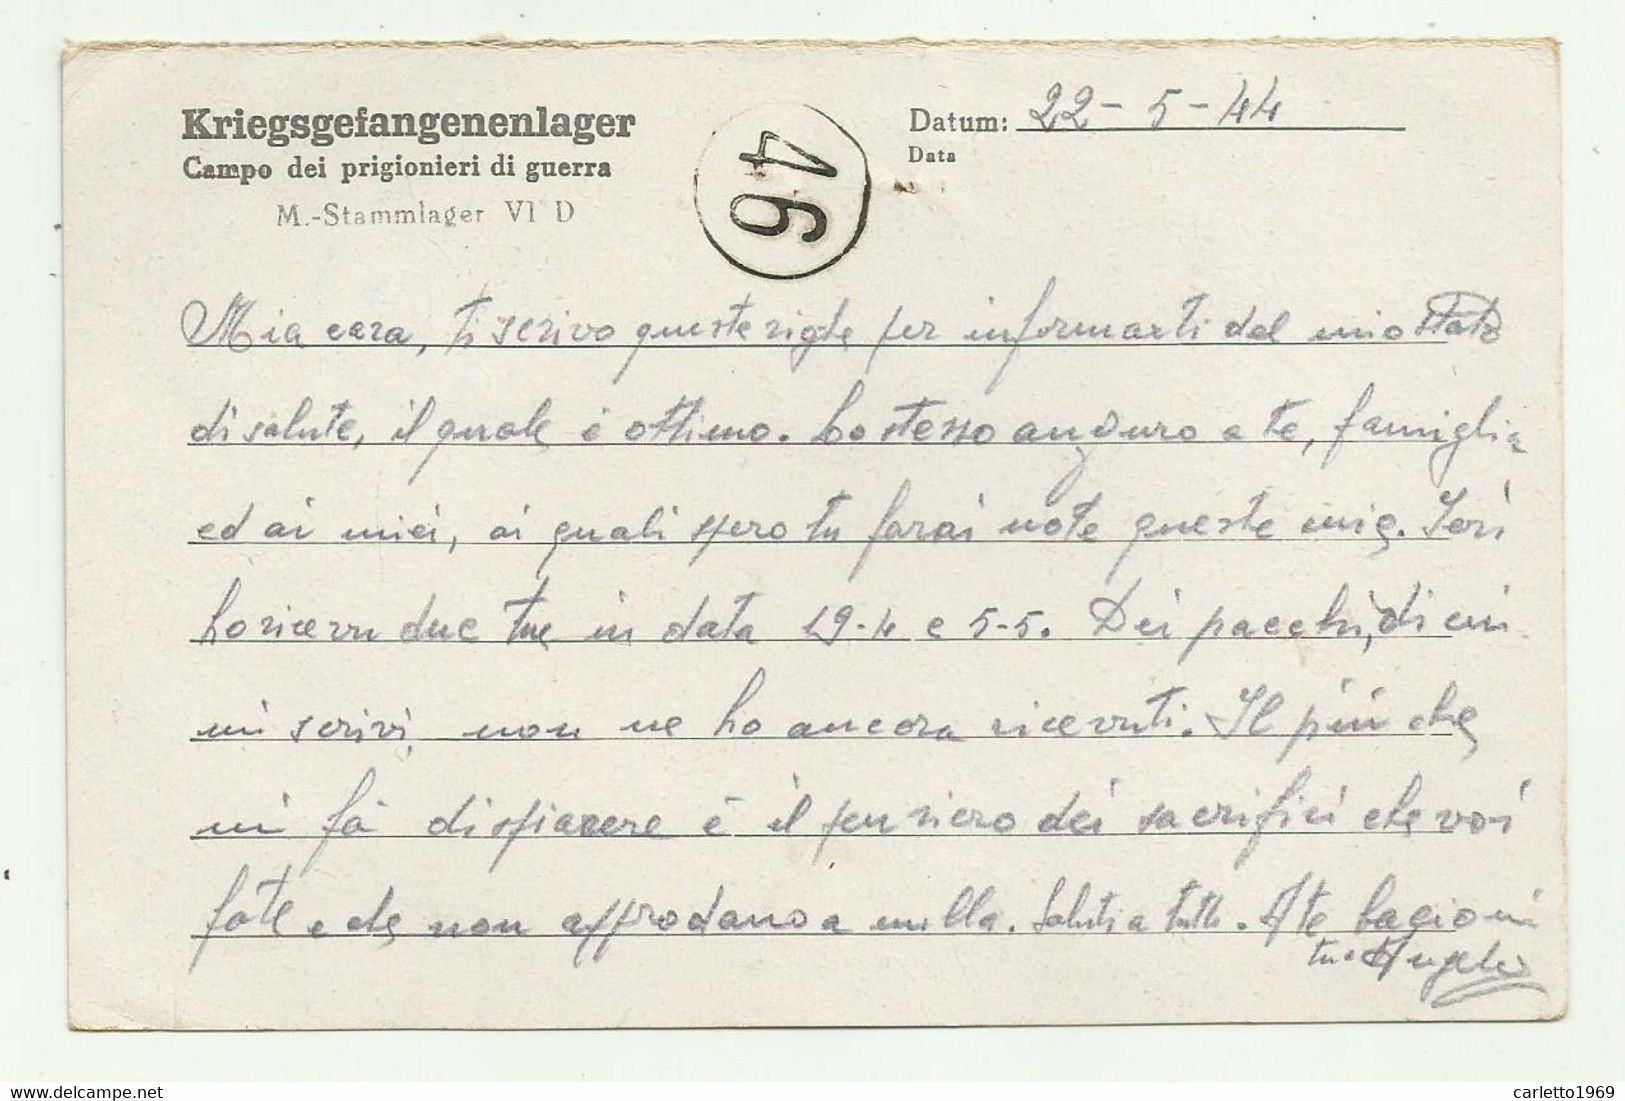 Kriegsgefangenenlager
Campo dei prigionieri di guerra
M.-Stammlager VI D
46
Datum: 22-5-44
Data
Mia cara, ti scrivo queste righe per informarti del mio stato
di salute, il quale è ottimo. Lo stesso auguro a te, famiglia
ed ai miei, ai quali spero tu farai note queste mie. Ieri
ho ricevu due tue in data 19-4 e 5-5. Dei pacchi, di cui
mi scrivi, non ne ho ancora ricevuti. Il più che
mi fà dispiacere è il pensiero dei sacrifici che voi
fate e che non approdano a nulla. Saluti a tutti. A te bacioni
tuo Angelo
www.delcampe.net
carletto1969